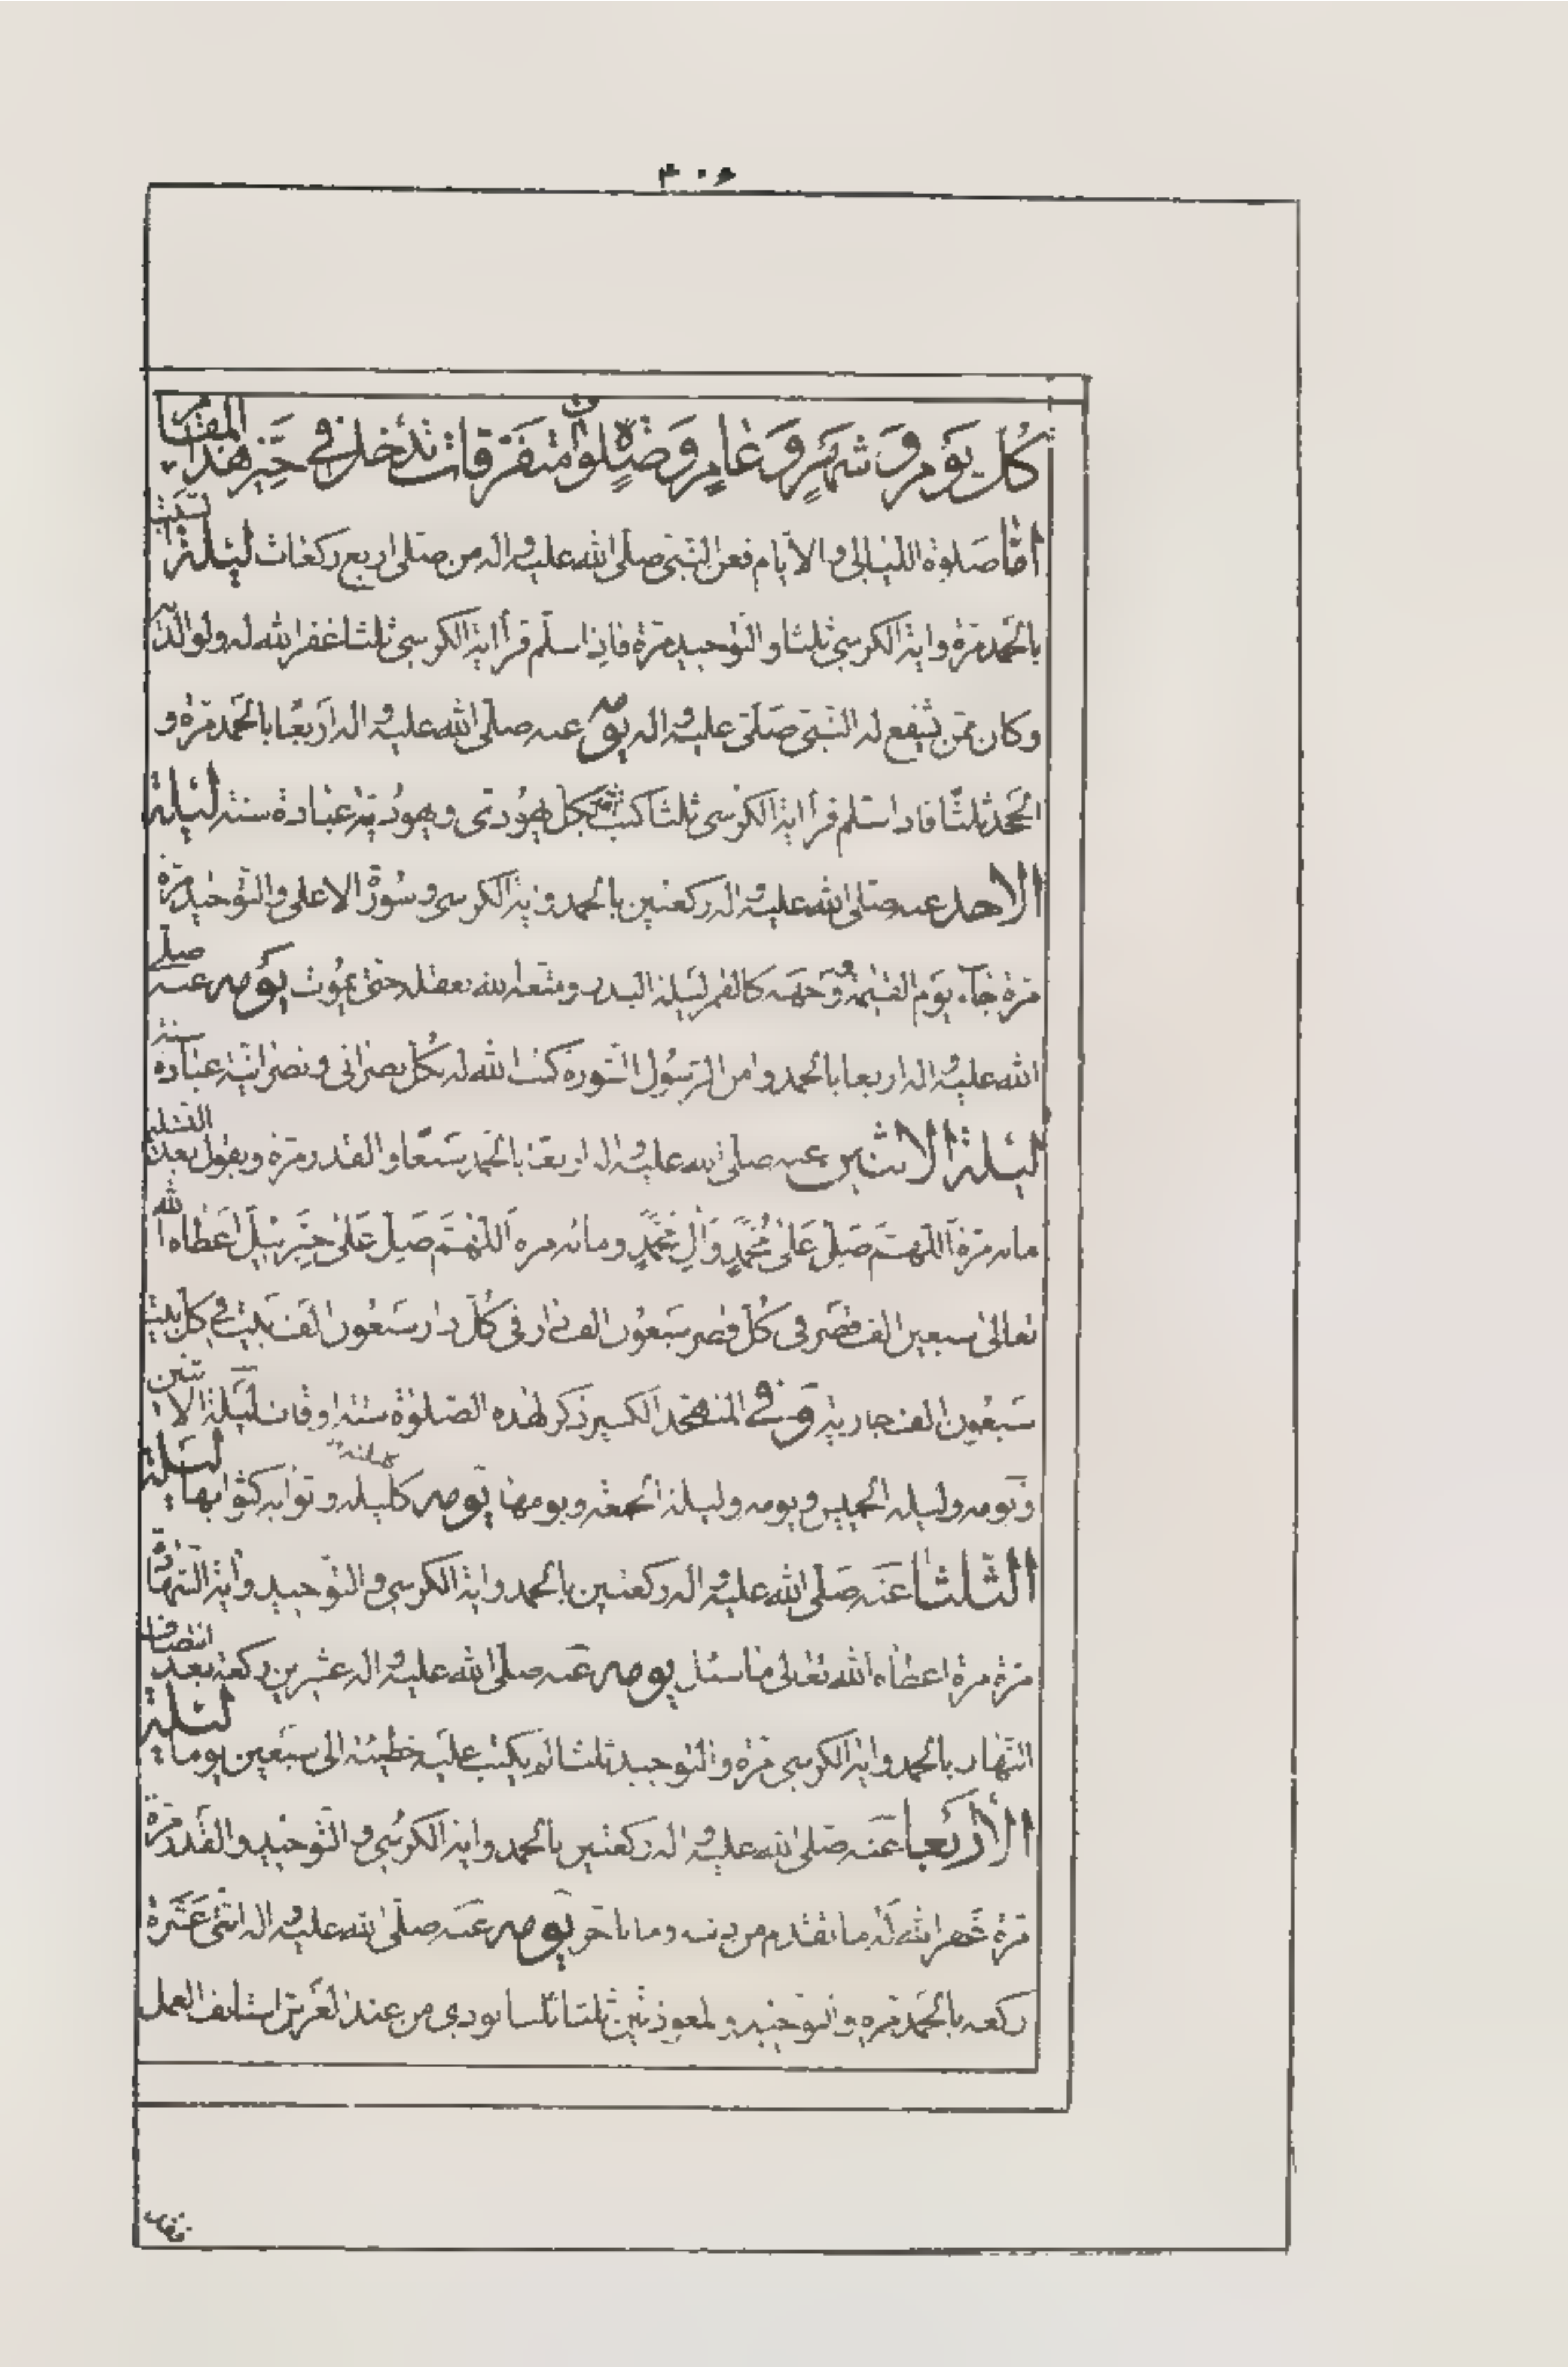 ۴۰۶
كُلِّ يَوْمٍ وَ شَهْرٍ وَ عَامٍ وَ صَلَوَاتٌ مُتَفَرِّقَاتٌ تَدْخُلُ فِي حَيِّزِ هَذَا المَقَام
أمّا صَلوة الليالى والايّام فعن النّبىّ صلى الله عليه واله من صلى اربع ركعات ليلة السّبت
بالحمد مرّة واية الكرسى ثلثا والتّوحيد مرّة فاذا سلّم قرأ اية الكرسى ثلثا غفر الله له ولوالديه
وكان ممّن يشفع له النّبىّ صَلّى عليه واله يومه عنه صلّى الله عليه واله اربعًا بالحمد مرّة و
الجحد ثلثًا فاذا سلم قرأ اية الكرسى ثلثا كتب بكل يهودى ويهوديّة عبادة سنة ليلة
الاحد عنه صلى الله عليه واله ركعتين بالحمد واية الكرسى وسُورة الاعلى والتّوحيد مرّة
مرّة جاء يوم القيمة ووجهه كالقمر ليلة البدر ومتّعه الله بعقله حتى يموت يومه عنه صلى
الله عليه واله اربعا بالحمد وامن الرّسُول السّورة كتب الله له بكُل نصرانى ونصرانيّة عبادة سنة
ليلة الاثنين عنه صلى الله عليه واله اربعًا بالحمد سبعًا والقدر مرة ويقول بعد التسليم
مائة مرّة اَللّهُمَّ صَلِّ عَلى مُحَمَّدٍ وَالِ مُحَمَّدٍ ومائة مرة اَللّهُمَّ صَلِّ عَلى جَبْرَئيلَ اَعطاه الله
تعالى سبعين الف قصر فى كُلّ قصر سبعُون الف دار فى كُلّ دار سبعُون الف بيت فى كل بيت
سَبعُون الف جارية و فى المتهجّد الكبير ذكر لهذه الصّلوة ستة اوقات ليلة الاثنين
ويومه وليلة الخميس ويومه وليلة الجمعة ويومها يومه كليله وثوابه كثوابها ليلة
الثّلثا عنه صَلّى الله عليه واله ركعتين بالحمد واية الكرسى والتّوحيد واية الشّهادة
مرّة مرة اعطاه الله تعالى ما سئل يومه عنه صلى الله عليه واله عشرين ركعة بعد انتصاف
النّهار بالحمد واية الكرسى مرّة والتوحيد ثلثا لم يكتب عليه خطيئة الى سبعين يوما ليلة
الأربعا عنه صلى الله عليه واله ركعتين بالحمد واية الكرسى والتّوحيد والقدر مرّة
مرّة غفر الله له ما تقدم من ذنبه وما تاخر يومه عنه صلّى الله عليه واله اثنتى عشرة
ركعة بالحمد مرة والتوحيد والمعوذتين ثلثا ثلثا نودى من عند العرش استانف العمل